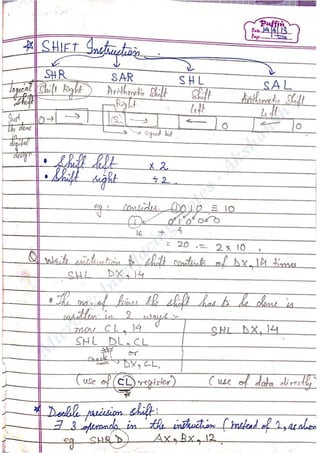 Puffin
Date
Page
* SHIFT Instruction
SHR SAR SHL SAL
Logical Shift Right Arithmetic Shift Shift Arithmetic Shift
Shift Right Left Left
Just 0 → S → 0 0
like done → signed bit
digital
design
• Shift left × 2
• Shift right ÷ 2
eg: consider 1010 ≡ 10
1 0100
16 + 4
= 20 = 2 × 10
Q Write instruction to shift contents of DX, 14 times
SHL DX, 14
• The no. of times the shift has to be done is
written in 2 ways:-
mov CL, 14 SHL DX, 14
SHL DL, CL
or
DX, CL,
(use of CL register) (use of data directly)
* Double precision shift:
∃ 3 operands in the instruction (instead of 2, as above
eg SHRD AX, BX, 12.